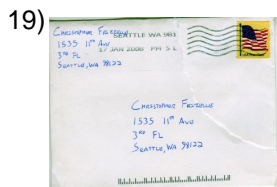 19)
CHRISTOPHER
1535 11th AVE
3RD FL
SEATTLE, WA 98122
SEATTLE WA 981
17 JAN 2008 PM 5 L
CHRISTOPHER
1535 11TH AVE
3RD FL
SEATTLE, WA 98122